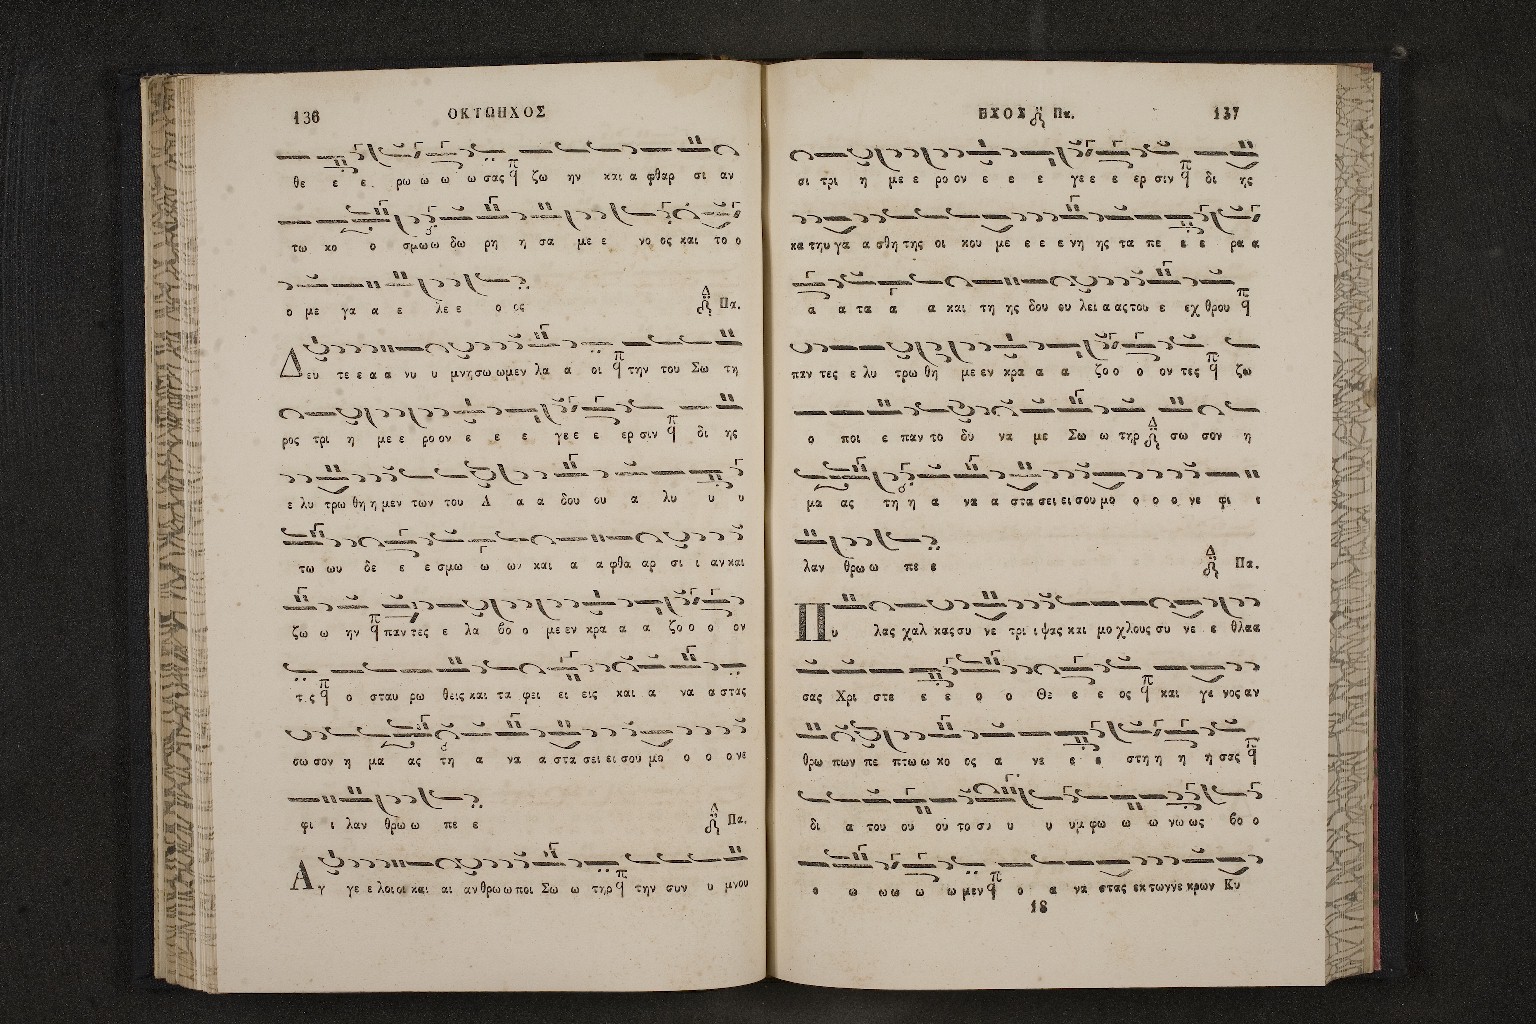 136 ΟΚΤΩΗΧΟΣ
θε ε ε ρω ω ω ω σας ζω ην και α φθαρ σι αν
τω κο ο σμω ω δω ρη η σα με ε νο ος και το ο
ο με γα α ε λε ε ο ος Πα.
Δευ τε ε α α νυ υ μνη σω ω μεν λα α οι την του Σω τη
ρος τρι η με ε ρο ον ε ε ε γε ε ε ερ σιν δι ης
ε λυ τρω θη η μεν των του Α α α δου ου α λυ υ υ
τω ων δε ε ε σμω ω ων και α α φθα αρ σι ι αν και
ζω ω ην παν τες ε λα βο ο με εν κρα α α ζο ο ο ον
τες ο σταυ ρω θεις και τα φει ει εις και α να α στας
σω σον η μα ας τη α να α στα σει ει σου μο ο ο ο νε
φι ι λαν θρω ω πε ε Πα.
Αγ γε ε λοι οι και αι αν θρω ω ποι Σω ω τηρ την συν υ μνου
ΗΧΟΣ Πα. 137
σι τρι η με ε ρο ον ε ε ε γε ε ε ερ σιν δι ης
κα τηυ γα α σθη της οι κου με ε ε ε νη ης τα πε ε ε ρα α
α α τα α α και τη ης δου ου λει α ας του ε εχ θρου
παν τες ε λυ τρω θη με εν κρα α α ζο ο ο ον τες ζω
ο ποι ε παν το δυ να με Σω ω τηρ σω σον η
μα ας τη η α να α στα σει ει σου μο ο ο ο νε φι ε
λαν θρω ω πε ε Πα.
Πυ λας χαλ κας συ νε τρι ι ψας και μο χλους συ νε ε θλα α
σας Χρι στε ε ε ο ο Θε ε ε ος και γε νος αν
θρω πων πε πτω ω κο ος α νε ε ε στη η η η σας
δι α του ου ου το συ υ υ υμ φω ω ω νω ως βο ο
ο ω ω ω ω ω μεν ο α να στας εκ των νε κρων Κυ
18